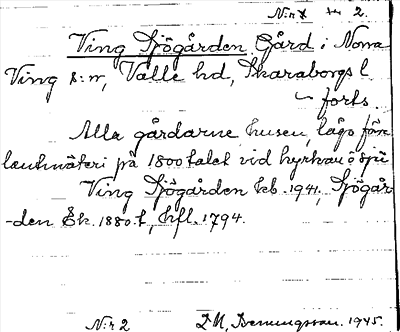 N:r 2.
Ving Sjögården Gård i Norra
Ving s:n, Valle hd, Skaraborgs l.
forts
Alla gårdarne, husen, lågo före
lantmäteri på 1800talet vid kyrkan o sjö
Ving Sjögården Eeb. 1941, Sjögår
-den Ek. 1880.t, hfl. 1794.
N:r 2 LM, Benningsson. 1945.